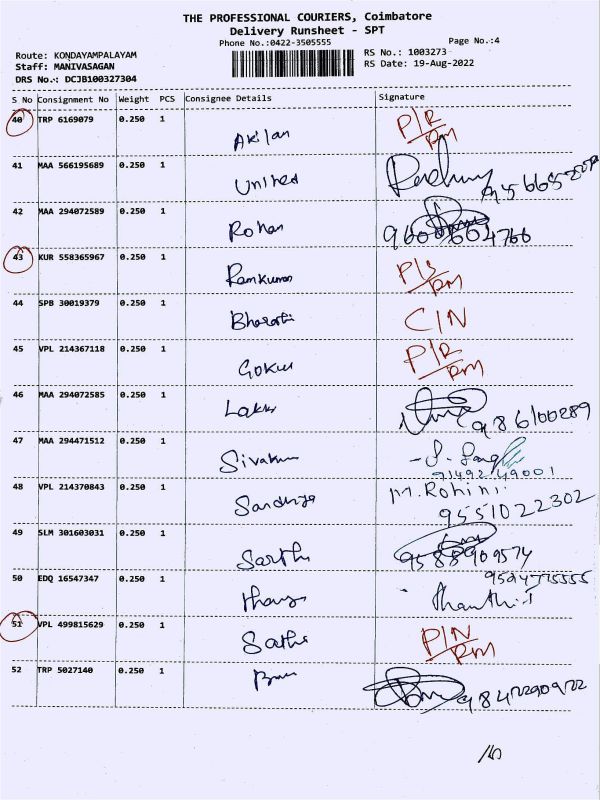 THE PROFESSIONAL COURIERS, Coimbatore
Delivery Runsheet - SPT
Phone No.:0422-3505555
Page No.:4
Route: KONDAYAMPALAYAM
RS No.: 1003273
Staff: MANIVASAGAN
RS Date: 19-Aug-2022
DRS No.: DCJB100327304
S No Consignment No Weight PCS Consignee Details Signature
40 TRP 6169079 0.250 1 Akilan P/R RM
41 MAA 566195689 0.250 1 United
42 MAA 294072589 0.250 1 Rohan
43 KUR 558365967 0.250 1 Ramkumar P/S RM
44 SPB 30019379 0.250 1 Bharathi C/N
45 VPL 214367118 0.250 1 Gokul P/R RM
46 MAA 294072585 0.250 1 986100289
47 MAA 294471512 0.250 1 Sivakum 9149249001
48 VPL 214370843 0.250 1 Sandhya M. Rohini 9551022302
49 SLM 301603031 0.250 1 Sarthi 9588909574
50 EDQ 16547347 0.250 1 Shanthi.T
51 VPL 499815629 0.250 1 P/N RM
52 TRP 5027140 0.250 1